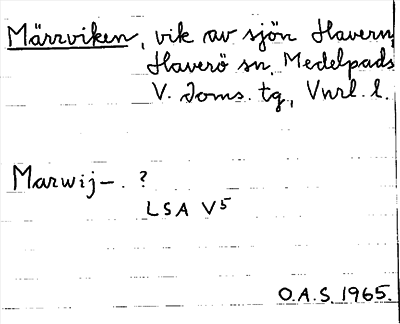 Märrviken, vik av sjön Havern,
Haverö sn, Medelpads
V. Doms. tg., Vnrl. l.
Marwij–. ?
LSA V5
O.A.S. 1965.